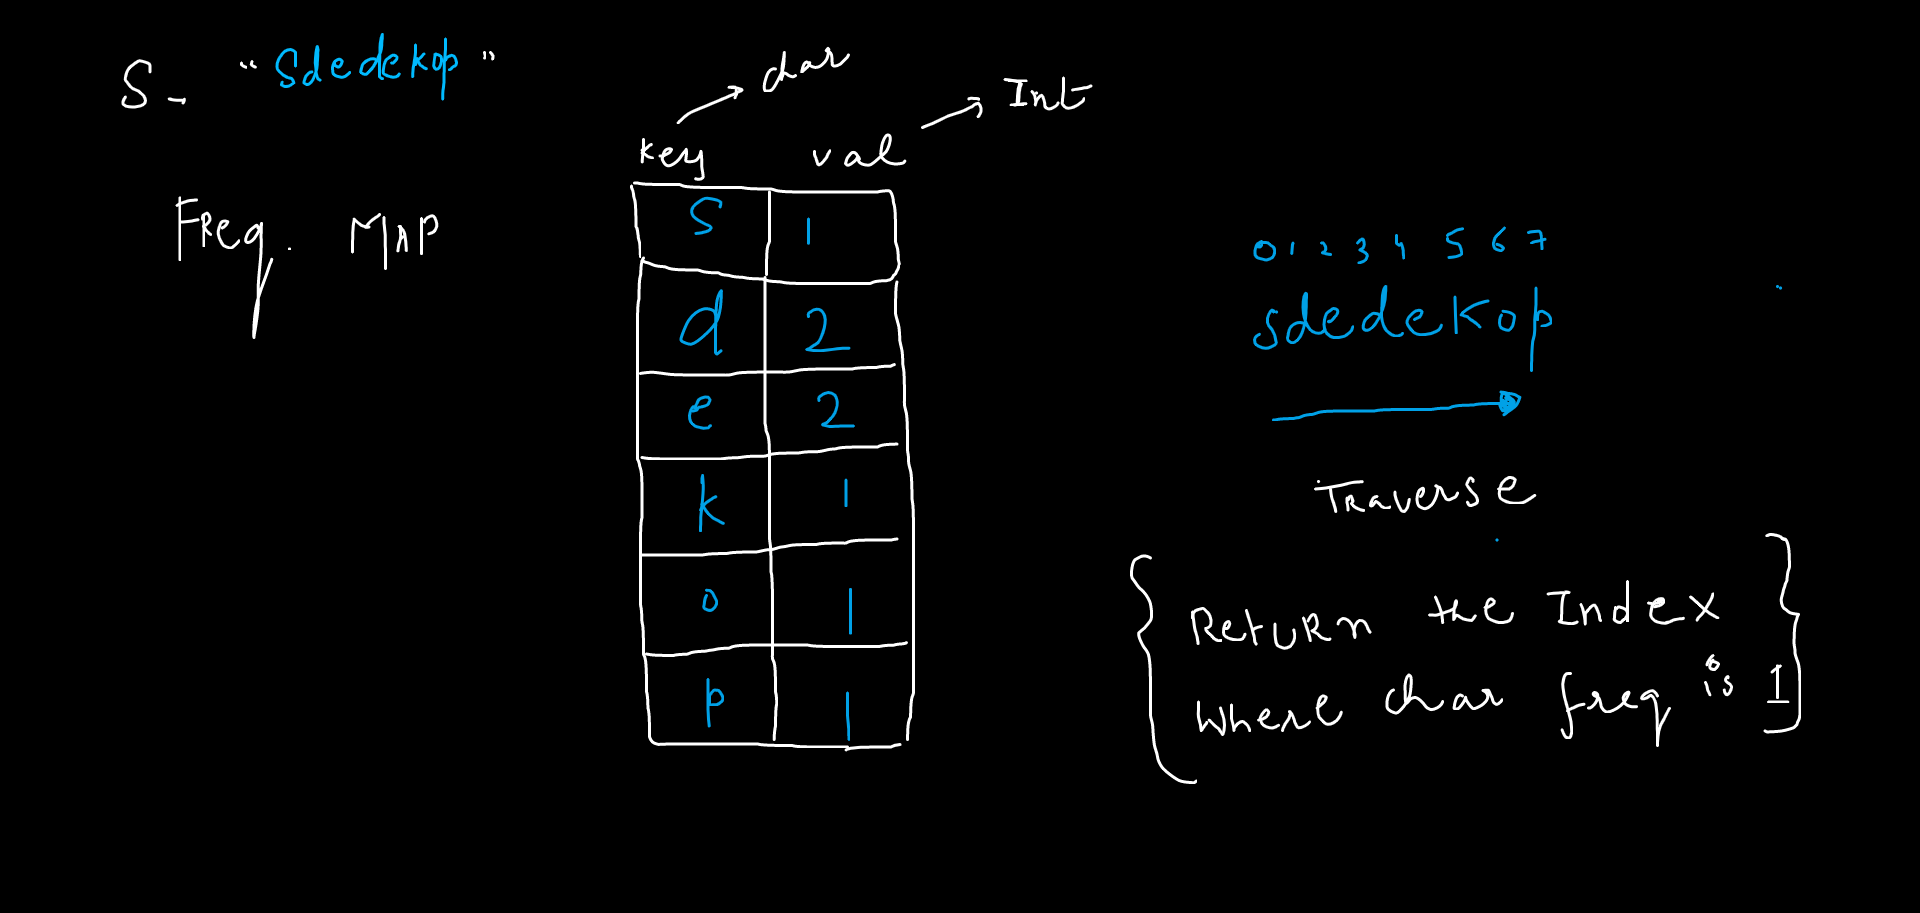 S - "Sdedekop"
Freq. MAP
char
Int
key val
S 1
d 2
e 2
k 1
o 1
p 1
0 1 2 3 4 5 6 7
sdedekop
Traverse
{ Return the Index
where char freq is 1 }